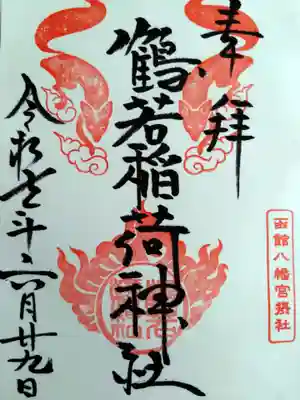 奉拝
鶴若稲荷神社
令和元年六月廿九日
函館八幡宮摂社